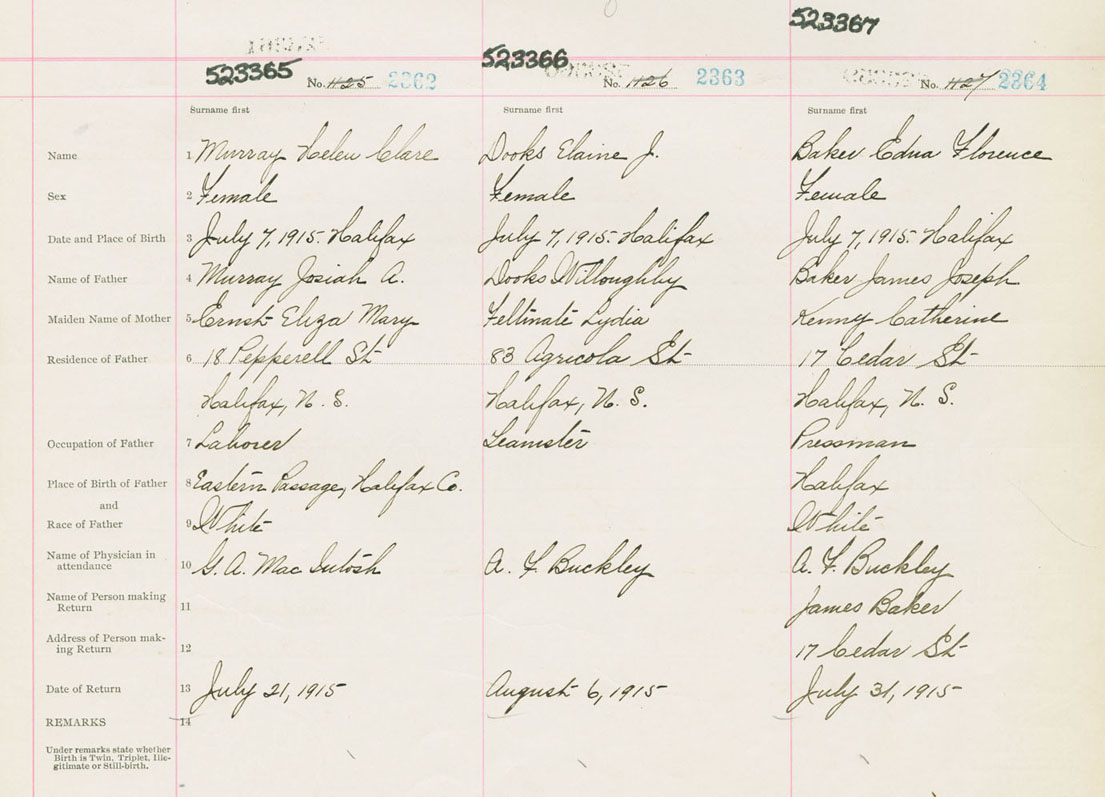 523367
523365 523366
No. 1125 2362 No. 1126 2363 No. 1127 2364
Surname first Surname first Surname first
Name 1 Murray Helen Clare Dooks Elaine J. Baker Edna Florence
Sex 2 Female Female Female
Date and Place of Birth 3 July 7, 1915. Halifax July 7, 1915. Halifax July 7, 1915. Halifax
Name of Father 4 Murray Josiah A. Dooks Willoughby Baker James Joseph
Maiden Name of Mother 5 Ernst Eliza Mary Feltmate Lydia Kenny Catherine
Residence of Father 6 18 Pepperell St 83 Agricola St 17 Cedar St
Halifax, N. S. Halifax, N. S. Halifax, N. S.
Occupation of Father 7 Laborer Teamster Pressman
Place of Birth of Father 8 Eastern Passage, Halifax Co. Halifax
and
Race of Father 9 White White
Name of Physician in
attendance 10 G. A. Mac Intosh A. F. Buckley A. F. Buckley
Name of Person making
Return 11 James Baker
Address of Person mak-
ing Return 12 17 Cedar St
Date of Return 13 July 21, 1915 August 6, 1915 July 31, 1915
REMARKS 14
Under remarks state whether
Birth is Twin, Triplet, Ille-
gitimate or Still-birth.